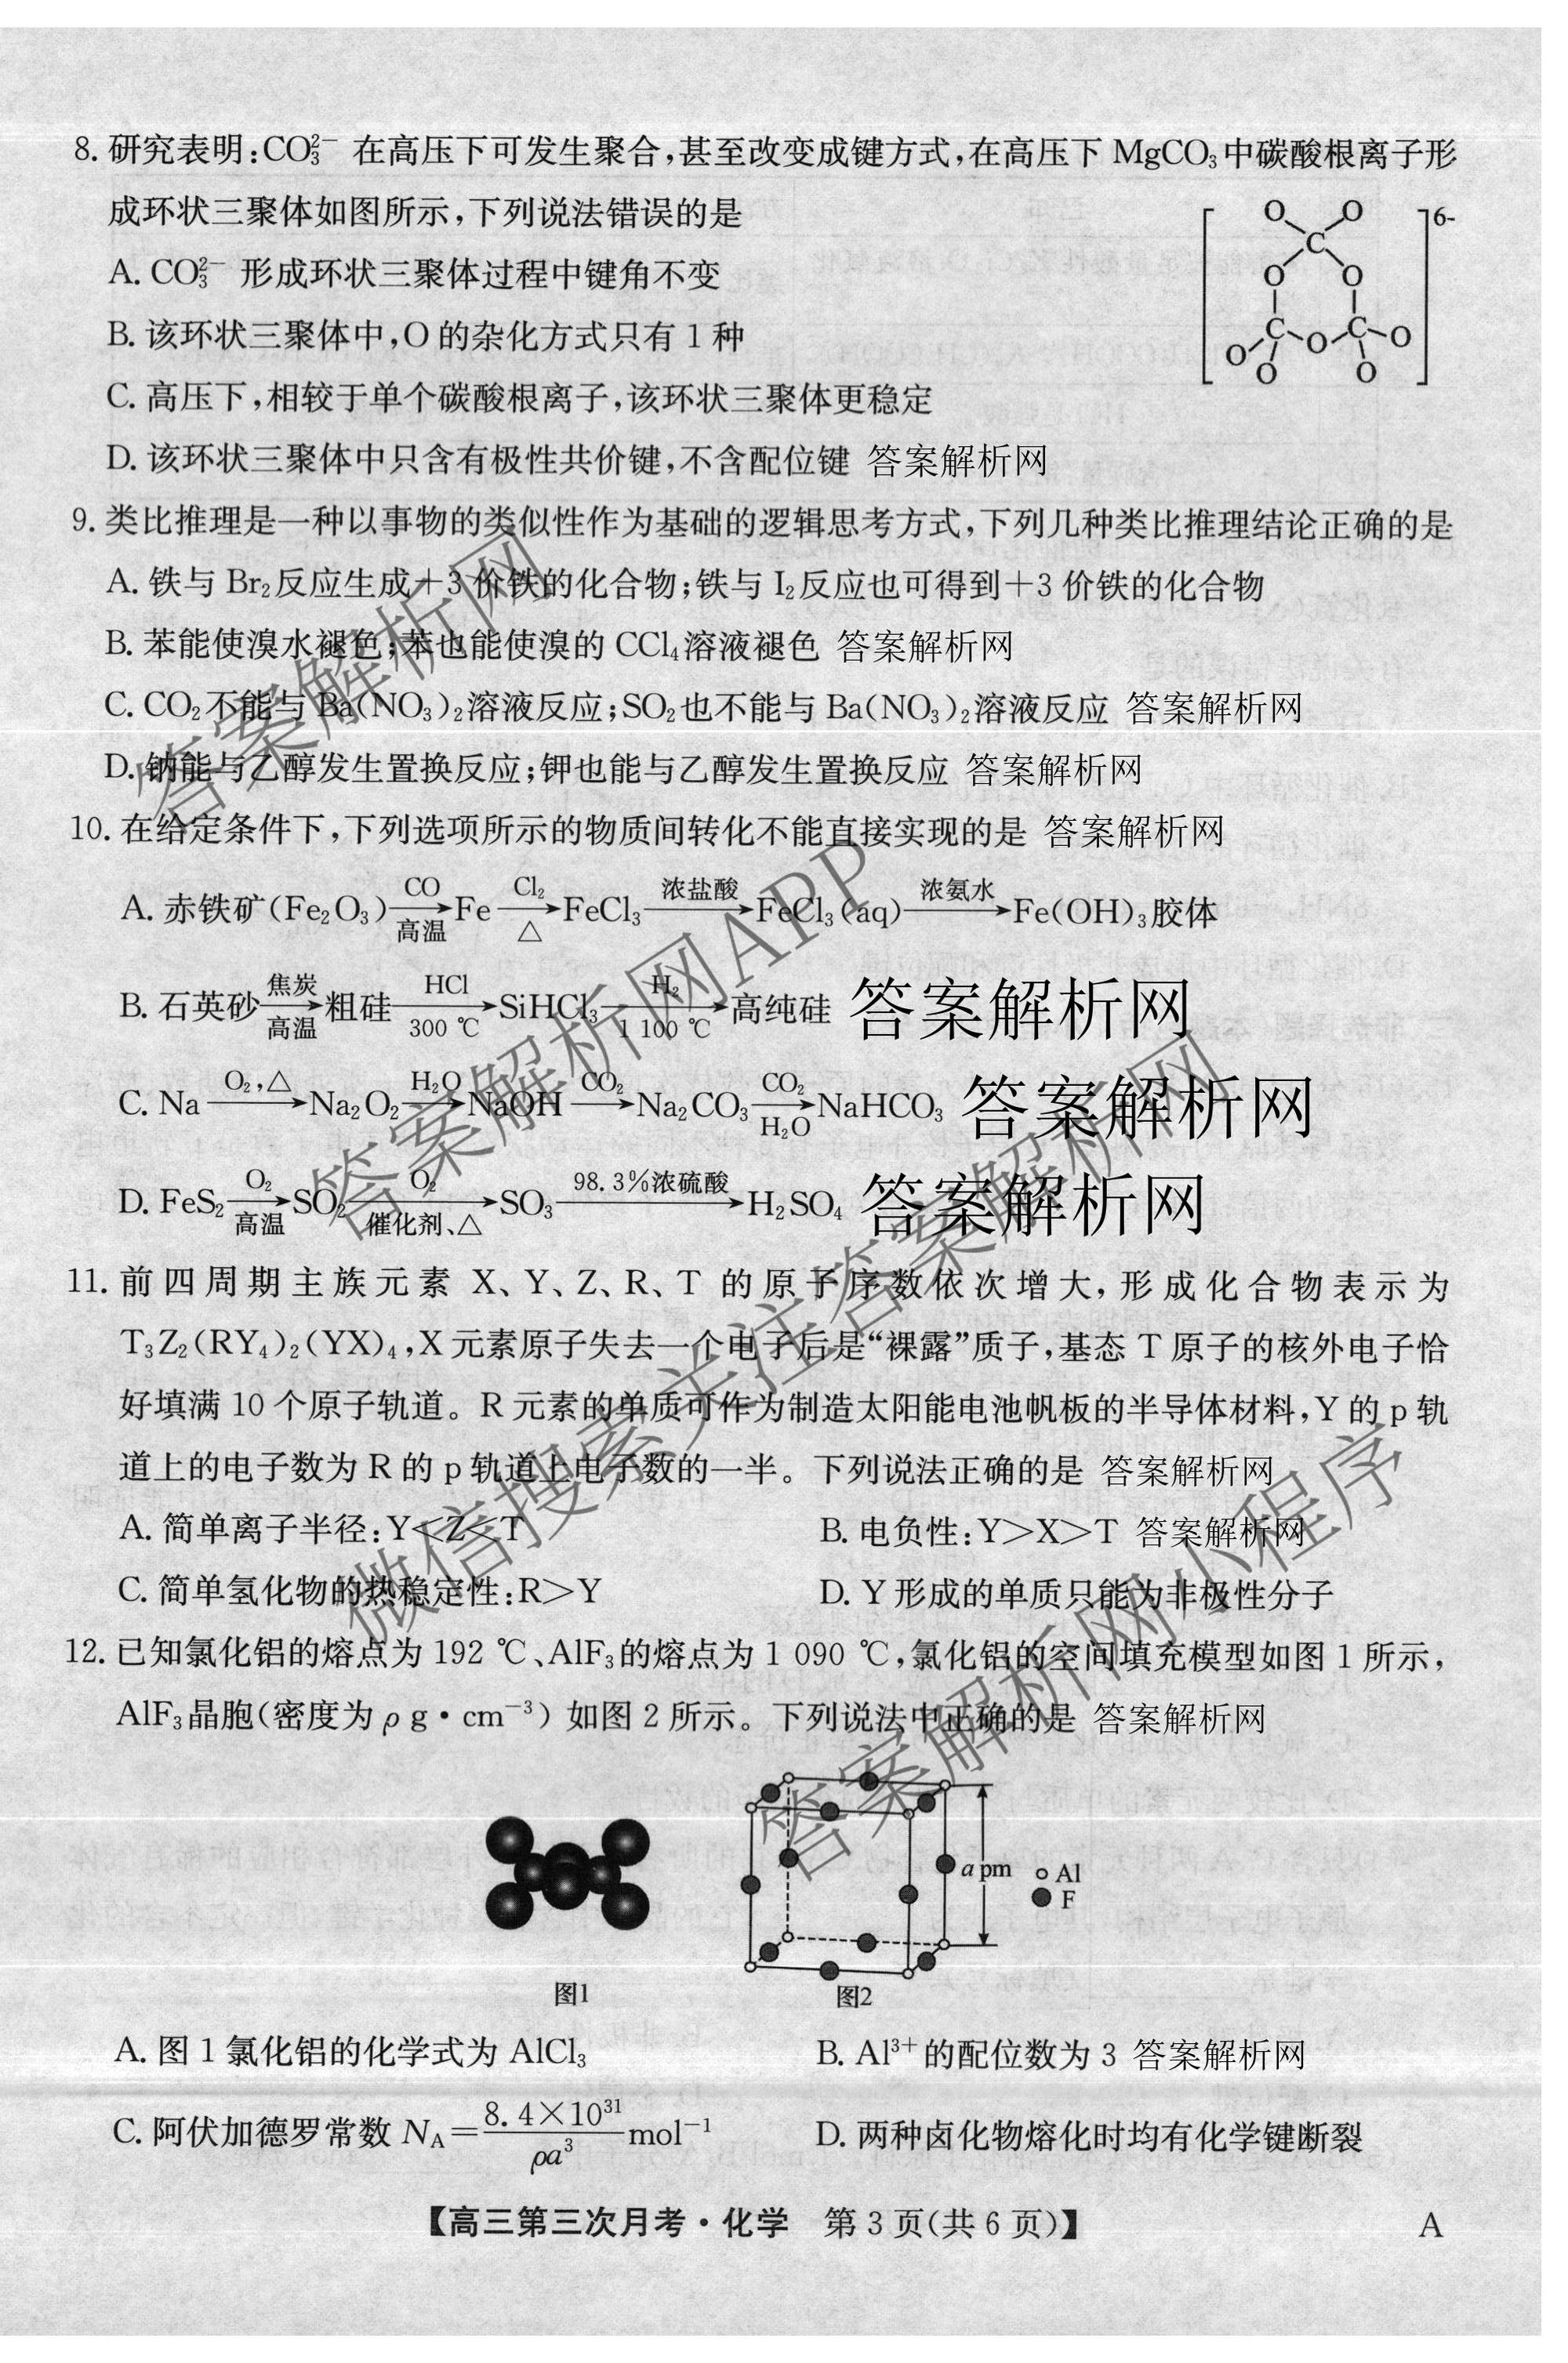 8. 研究表明:CO₃²⁻ 在高压下可发生聚合,甚至改变成键方式,在高压下 MgCO₃中碳酸根离子形
成环状三聚体如图所示,下列说法错误的是
A. CO₃²⁻ 形成环状三聚体过程中键角不变
B. 该环状三聚体中,O 的杂化方式只有 1 种
C. 高压下,相较于单个碳酸根离子,该环状三聚体更稳定
D. 该环状三聚体中只含有极性共价键,不含配位键 答案解析网
O O 6-
C
O O
C O C O
O O O
9. 类比推理是一种以事物的类似性作为基础的逻辑思考方式,下列几种类比推理结论正确的是
A. 铁与 Br₂反应生成+3 价铁的化合物;铁与 I₂反应也可得到+3 价铁的化合物
B. 苯能使溴水褪色;苯也能使溴的 CCl₄溶液褪色 答案解析网
C. CO₂不能与 Ba(NO₃)₂溶液反应;SO₂也不能与 Ba(NO₃)₂溶液反应 答案解析网
D. 钠能与乙醇发生置换反应;钾也能与乙醇发生置换反应 答案解析网
10. 在给定条件下,下列选项所示的物质间转化不能直接实现的是 答案解析网
A. 赤铁矿(Fe₂O₃) —CO/高温→ Fe —Cl₂/△→ FeCl₃ —浓盐酸→ FeCl₃(aq) —浓氨水→ Fe(OH)₃胶体
B. 石英砂 —焦炭/高温→ 粗硅 —HCl/300 ℃→ SiHCl₃ —H₂/1 100 ℃→ 高纯硅 答案解析网
C. Na —O₂,△→ Na₂O₂ —H₂O→ NaOH —CO₂→ Na₂CO₃ —CO₂/H₂O→ NaHCO₃ 答案解析网
D. FeS₂ —O₂/高温→ SO₂ —O₂/催化剂、△→ SO₃ —98.3%浓硫酸→ H₂SO₄ 答案解析网
11. 前四周期主族元素 X、Y、Z、R、T 的原子序数依次增大,形成化合物表示为
T₃Z₂(RY₄)₂(YX)₄,X 元素原子失去一个电子后是“裸露”质子,基态 T 原子的核外电子恰
好填满 10 个原子轨道。R 元素的单质可作为制造太阳能电池帆板的半导体材料,Y 的 p 轨
道上的电子数为 R 的 p 轨道上电子数的一半。下列说法正确的是 答案解析网
A. 简单离子半径:Y<Z<T B. 电负性:Y>X>T 答案解析网
C. 简单氢化物的热稳定性:R>Y D. Y 形成的单质只能为非极性分子
12. 已知氯化铝的熔点为 192 ℃、AlF₃的熔点为 1 090 ℃,氯化铝的空间填充模型如图 1 所示,
AlF₃晶胞(密度为 ρ g·cm⁻³) 如图 2 所示。下列说法中正确的是 答案解析网
a pm
Al
F
图1 图2
A. 图 1 氯化铝的化学式为 AlCl₃ B. Al³⁺ 的配位数为 3 答案解析网
C. 阿伏加德罗常数 N_A=8.4×10³¹/ρa³ mol⁻¹ D. 两种卤化物熔化时均有化学键断裂
【高三第三次月考·化学 第 3 页(共 6 页)】 A
答案解析网
答案解析网APP
微信搜索关注答案解析网
答案解析网小程序